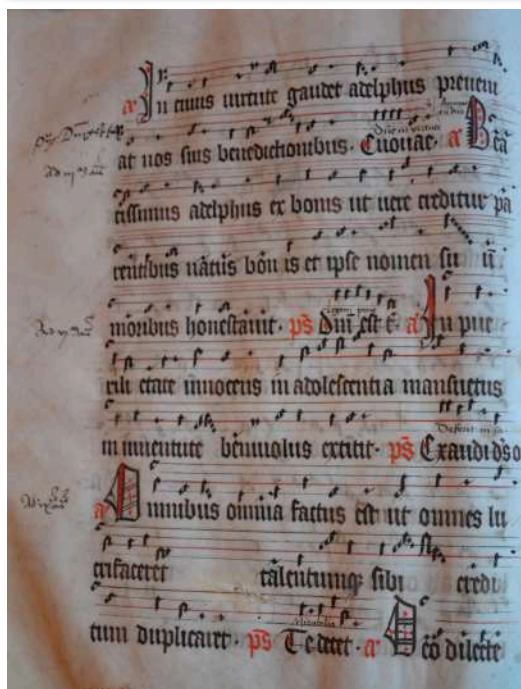 a In cuius uirtute gaudet adelphus preueni
at nos suis benedictionibus. Euouae. a B̄ea
tissimus adelphus ex bonis ut uere creditur pa
rentibus natus bon is et ipse nomen su ū
moribus honestauit. ps Dn̄i est t̄. a In pue
rili etate innocens in adolescentia mansuetus
in iuuentute beniuolus extitit. ps Exaudi ds o
a Omnibus omnia factus est ut omnes lu
crifaceret talentumq sibi credi
tum duplicaret. ps Te decet. a deō dilecte